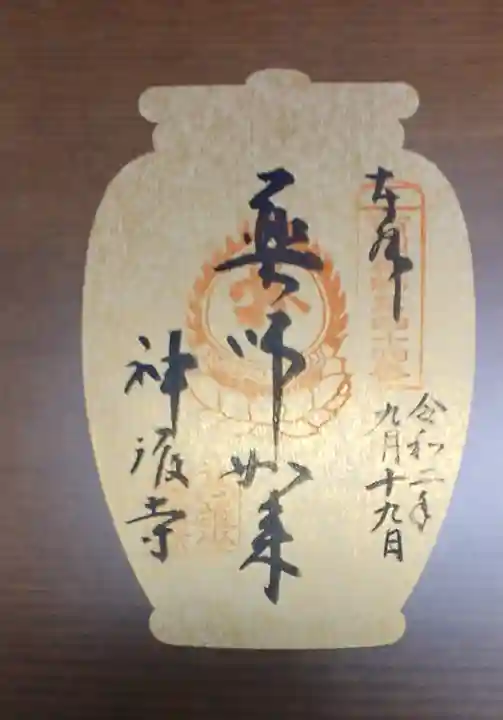 奉拝
令和二年
九月十九日
薬師如来
神護寺